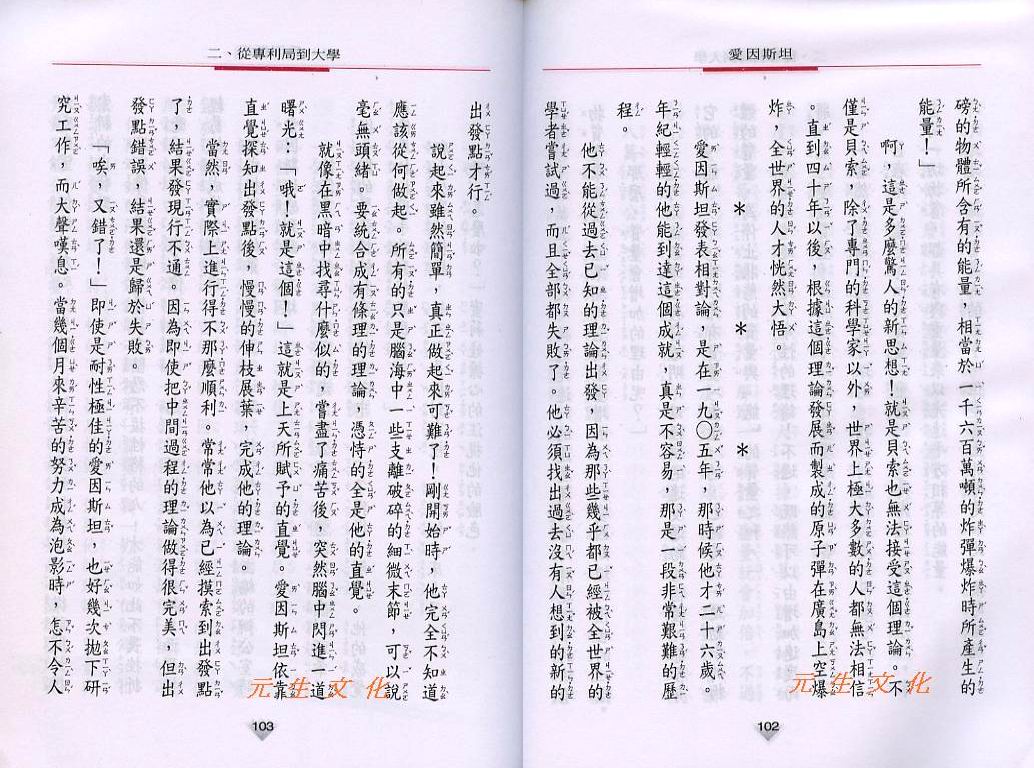 愛因斯坦
磅的物體所含有的能量，相當於一千六百萬噸的炸彈爆炸時所產生的
能量！」
啊，這是多麼驚人的新思想！就是貝索也無法接受這個理論。不
僅是貝索，除了專門的科學家以外，世界上極大多數的人都無法相信
。直到四十年以後，根據這個理論發展而製成的原子彈在廣島上空爆
炸，全世界的人才恍然大悟。
＊　＊　＊
愛因斯坦發表相對論，是在一九〇五年，那時候他才二十六歲。
年紀輕輕的他能到達這個成就，真是不容易，那是一段非常艱難的歷
程。
他不能從過去已知的理論出發，因為那些幾乎都已經被全世界的
學者嘗試過，而且全部都失敗了。他必須找出過去沒有人想到的新的
元生文化
102
二、從專利局到大學
出發點才行。
說起來雖然簡單，真正做起來可難了！剛開始時，他完全不知道
應該從何做起。所有的只是腦海中一些支離破碎的細微末節，可以說
毫無頭緒。要統合成有條理的理論，憑恃的全是他的直覺。
就像在黑暗中找尋什麼似的，嘗盡了痛苦後，突然腦中閃進一道
曙光：「哦！就是這個！」這就是上天所賦予的直覺。愛因斯坦依靠
直覺探知出發點後，慢慢的伸枝展葉，完成他的理論。
當然，實際上進行得不那麼順利。常常他以為已經摸索到出發點
了，結果發現行不通。因為即使把中間過程的理論做得很完美，但出
發點錯誤，結果還是歸於失敗。
「唉，又錯了！」即使是耐性極佳的愛因斯坦，也好幾次拋下研
究工作，而大聲嘆息。當幾個月來辛苦的努力成為泡影時，怎不令人
元生文化
103